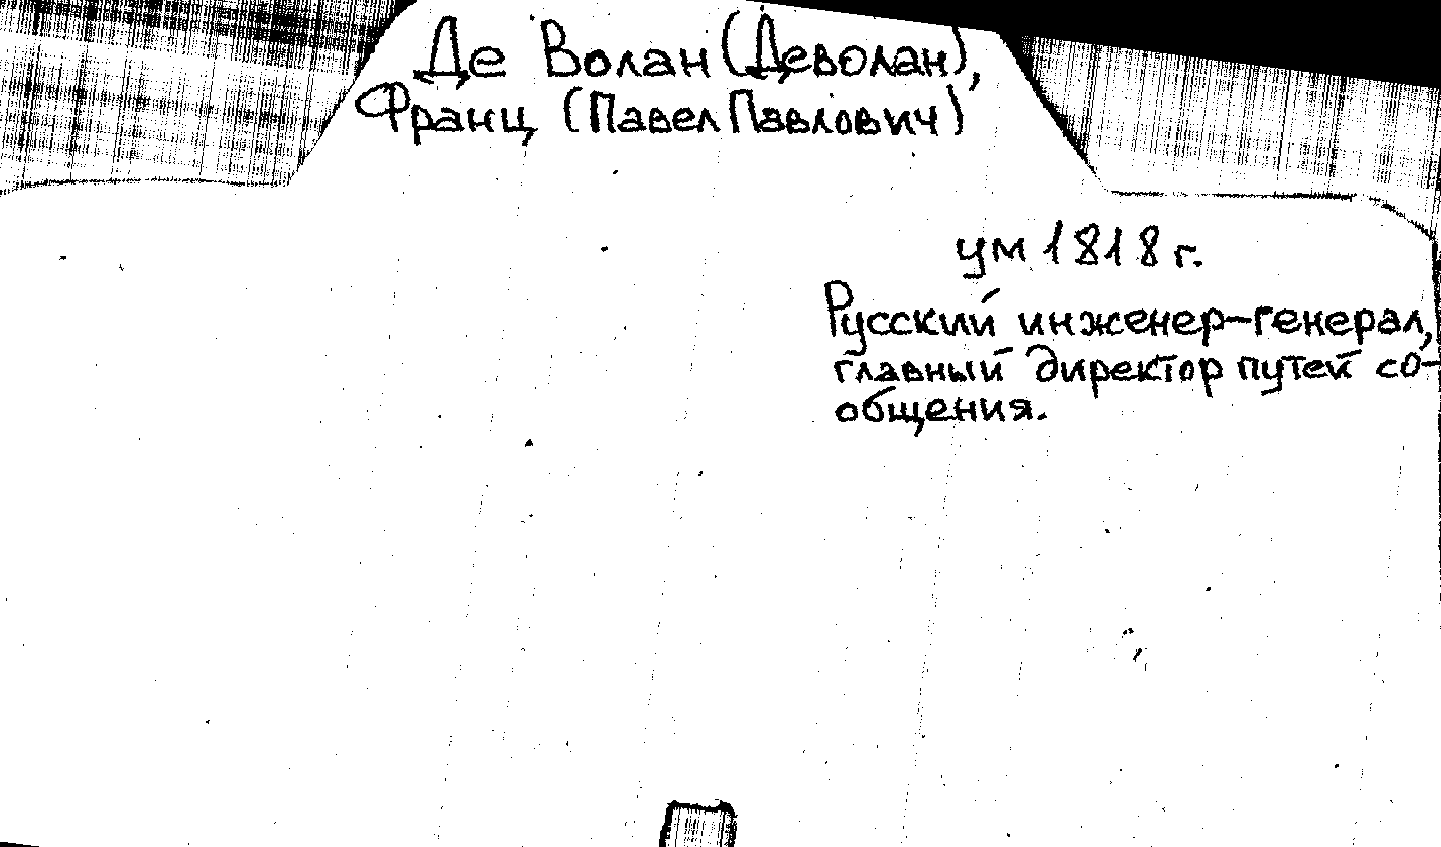 Де Волан (Деволан),
Франц (Павел Павлович)
ум 1818 г.
Русский инженер-генерал,
главный директор путей со-
общения.